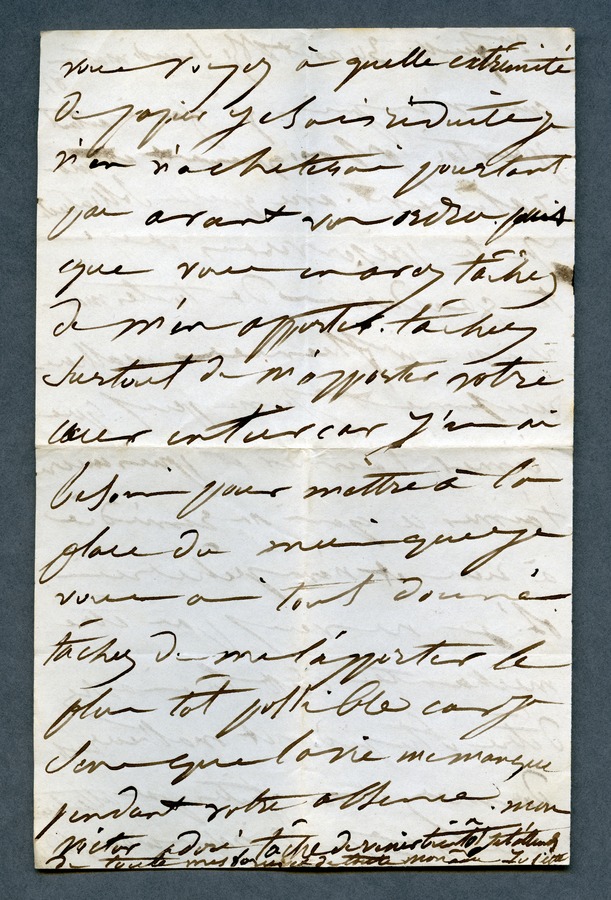 vous voyez à quelle extrémité
de papier je suis réduite je
n'en n'acheterai pourtant
pas avant vos ordres. puis
que vous en avez tâchez
de m'en apporter. tâchez
surtout de m'apporter votre
cœur entier car j'en ai
besoin pour mettre à la
place du mien que je
vous ai tout donné
tâchez de me l'apporter le
plus tôt possible car je
sens que la vie me manque
pendant votre absence. mon
Victor adoré, tâche de venir bientôt je t'attends
de toutes mes forces et de toute mon âme Juliette